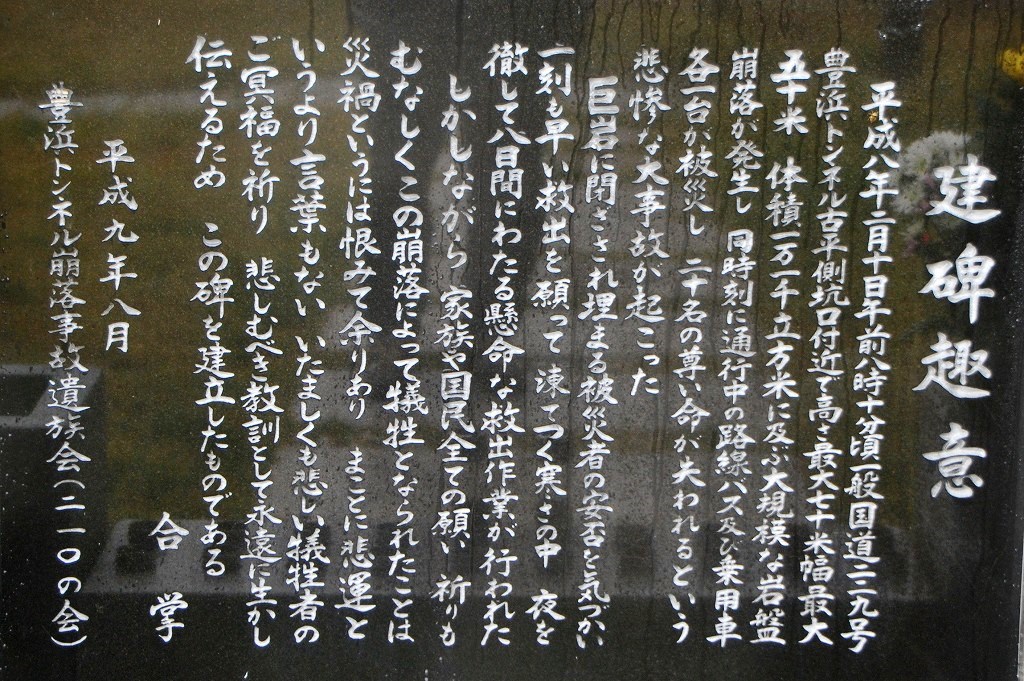 建碑趣意
平成八年二月十日午前八時十分頃一般国道二二九号
豊浜トンネル古平側坑口付近で高さ最大七十米幅最大
五十米　体積一万一千立方米に及ぶ大規模な岩盤
崩落が発生し　同時刻に通行中の路線バス及び乗用車
各一台が被災し　二十名の尊い命が失われるという
悲惨な大事故が起こった
巨岩に閉ざされ埋まる被災者の安否を気づかい
一刻も早い救出を願って凍てつく寒さの中　夜を
徹して八日間にわたる懸命な救出作業が行われた
しかしながら　家族や国民全ての願い祈りも
むなしくこの崩落によって犠牲となられたことは
災禍というには恨みて余りあり　まことに悲運と
いうより言葉もない　いたましくも悲しい犠牲者の
ご冥福を祈り　悲しむべき教訓として永遠に生かし
伝えるため　この碑を建立したものである
合学
平成九年八月
豊浜トンネル崩落事故遺族会（二一〇の会）